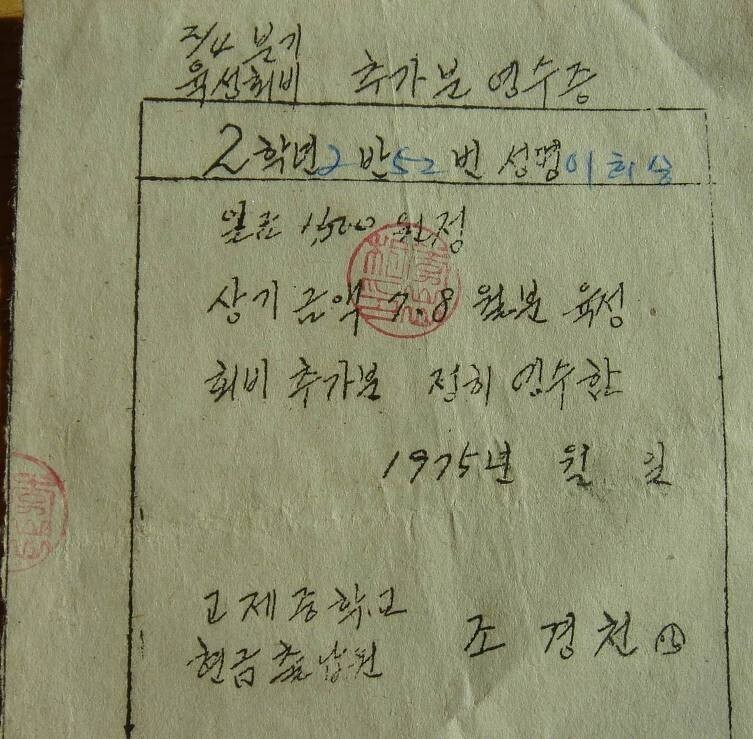 2/4 분기
육성회비 추가분 영수증
2학년 2반 52번 성명 이희상
일금 1,500 원정
상기 금액 7.8 월분 육성
회비 추가분 정히 영수함
1975년 월 일
고제중학교
현금출납원 조경천 ㊞